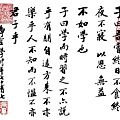 子曰吾嘗終日不食終
夜不寢以思無益
不如學也
子曰學而時習之不亦說
乎有朋自遠方來不亦
樂乎人不知而不慍不亦
君子乎